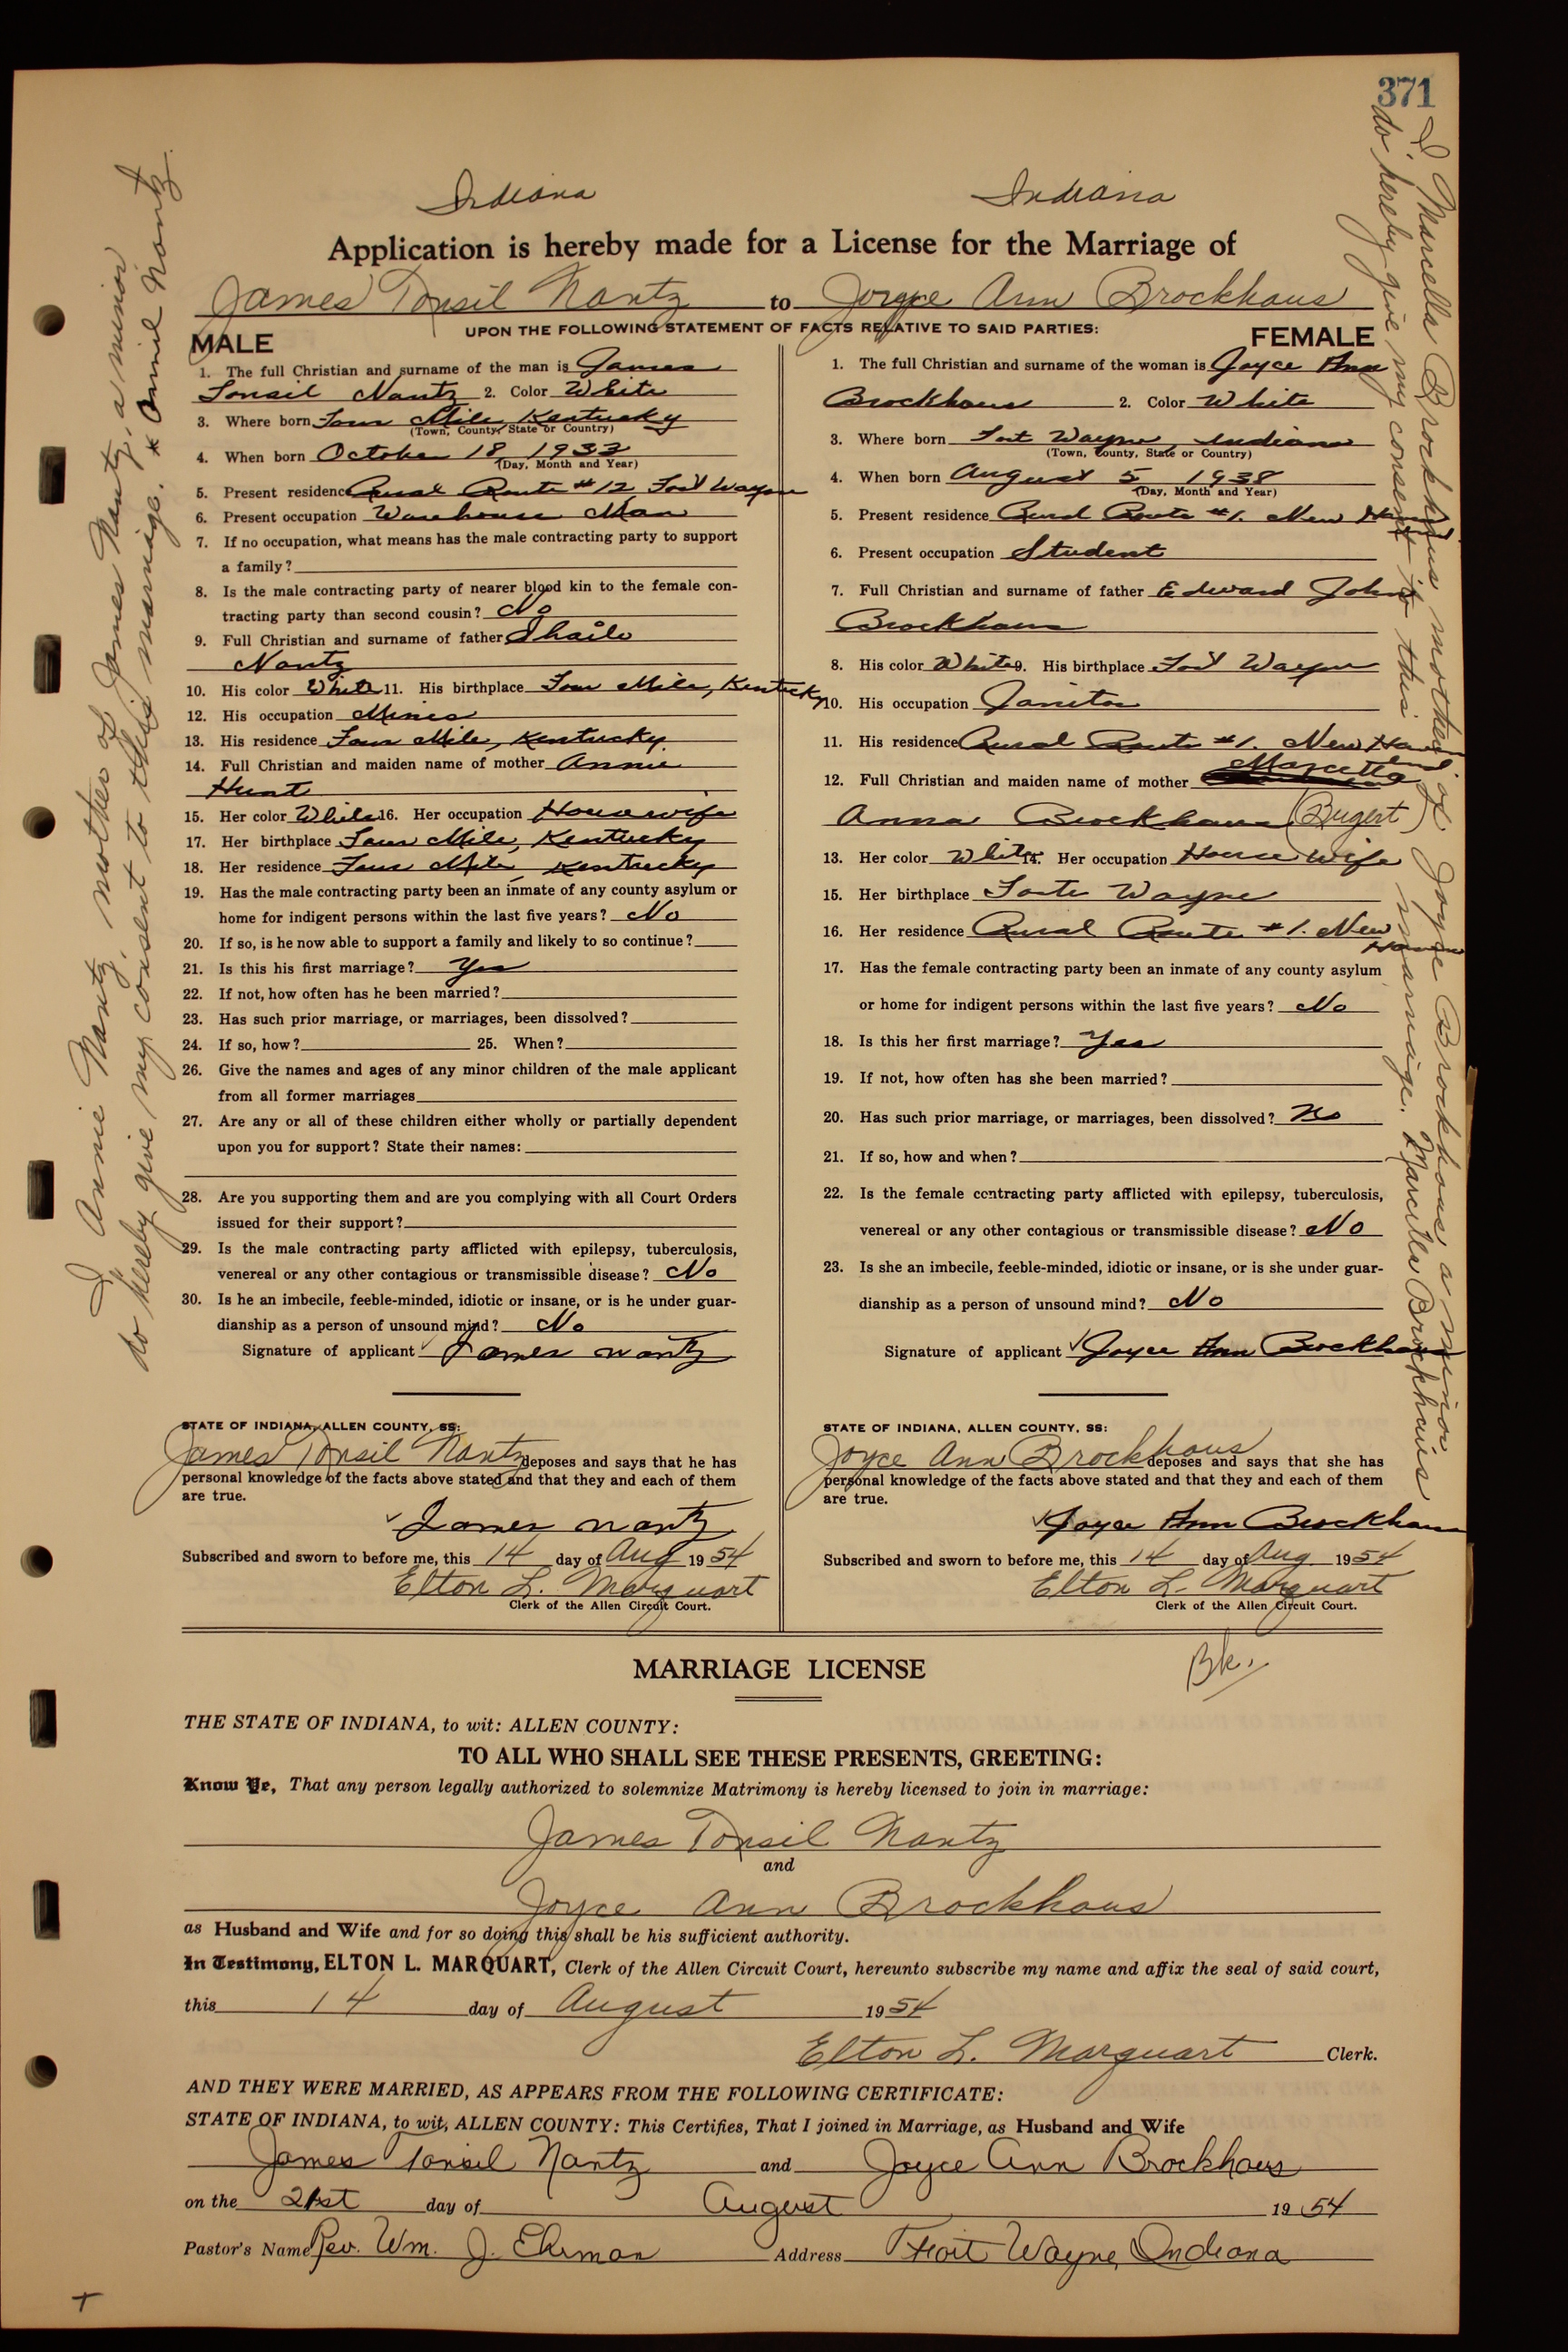 371
Indiana Indiana
Application is hereby made for a License for the Marriage of
James Tonsil Nantz to Joyce Ann Brockhaus
UPON THE FOLLOWING STATEMENT OF FACTS RELATIVE TO SAID PARTIES:
MALE
1. The full Christian and surname of the man is James
Tonsil Nantz 2. Color White
3. Where born Four Mile, Kentucky
(Town, County, State or Country)
4. When born October 18, 1933
(Day, Month and Year)
5. Present residence Rural Route #12 Fort Wayne
6. Present occupation Warehouse Man
7. If no occupation, what means has the male contracting party to support
a family?
8. Is the male contracting party of nearer blood kin to the female con-
tracting party than second cousin? No
9. Full Christian and surname of father
Nantz
10. His color White 11. His birthplace Four Mile, Kentucky
12. His occupation
13. His residence Four Mile, Kentucky
14. Full Christian and maiden name of mother Annie
Hunt
15. Her color White 16. Her occupation Housewife
17. Her birthplace Four Mile, Kentucky
18. Her residence Four Mile Kentucky
19. Has the male contracting party been an inmate of any county asylum or
home for indigent persons within the last five years? No
20. If so, is he now able to support a family and likely to so continue?
21. Is this his first marriage? Yes
22. If not, how often has he been married?
23. Has such prior marriage, or marriages, been dissolved?
24. If so, how? 25. When?
26. Give the names and ages of any minor children of the male applicant
from all former marriages
27. Are any or all of these children either wholly or partially dependent
upon you for support? State their names:
28. Are you supporting them and are you complying with all Court Orders
issued for their support?
29. Is the male contracting party afflicted with epilepsy, tuberculosis,
venereal or any other contagious or transmissible disease? No
30. Is he an imbecile, feeble-minded, idiotic or insane, or is he under guar-
dianship as a person of unsound mind? No
Signature of applicant James Nantz
STATE OF INDIANA, ALLEN COUNTY, SS:
James Tonsil Nantz deposes and says that he has
personal knowledge of the facts above stated and that they and each of them
are true.
James Nantz
Subscribed and sworn to before me, this 14 day of Aug 1954
Elton L. Marquart
Clerk of the Allen Circuit Court.
FEMALE
1. The full Christian and surname of the woman is Joyce Ann
Brockhaus 2. Color White
3. Where born Fort Wayne, Indiana
(Town, County, State or Country)
4. When born August 5 1938
(Day, Month and Year)
5. Present residence Rural Route #1. New Haven
6. Present occupation Student
7. Full Christian and surname of father Edward John
Brockhaus
8. His color White 9. His birthplace Fort Wayne
10. His occupation Janitor
11. His residence Rural Route #1. New Haven
12. Full Christian and maiden name of mother Marcella
Anna Brockhaus (Bugert)
13. Her color White 14. Her occupation House wife
15. Her birthplace Forte Wayne
16. Her residence Rural Route #1. New
Haven
17. Has the female contracting party been an inmate of any county asylum
or home for indigent persons within the last five years? No
18. Is this her first marriage? Yes
19. If not, how often has she been married?
20. Has such prior marriage, or marriages, been dissolved? No
21. If so, how and when?
22. Is the female contracting party afflicted with epilepsy, tuberculosis,
venereal or any other contagious or transmissible disease? No
23. Is she an imbecile, feeble-minded, idiotic or insane, or is she under guar-
dianship as a person of unsound mind? No
Signature of applicant Joyce Ann Brockhaus
STATE OF INDIANA, ALLEN COUNTY, SS:
Joyce Ann Brockhaus deposes and says that she has
personal knowledge of the facts above stated and that they and each of them
are true.
Joyce Ann Brockhaus
Subscribed and sworn to before me, this 14 day of Aug 1954
Elton L. Marquart
Clerk of the Allen Circuit Court.
I Annie Nantz, mother of James Nantz, a minor
do hereby give my consent to this marriage. x Annie Nantz
I Marcella Brockhaus mother of Joyce Brockhaus, a minor
do hereby give my consent to this marriage. Marcella Brockhaus
Bk.
MARRIAGE LICENSE
THE STATE OF INDIANA, to wit: ALLEN COUNTY:
TO ALL WHO SHALL SEE THESE PRESENTS, GREETING:
Know Ye, That any person legally authorized to solemnize Matrimony is hereby licensed to join in marriage:
James Tonsil Nantz
and
Joyce Ann Brockhaus
as Husband and Wife and for so doing this shall be his sufficient authority.
In Testimony, ELTON L. MARQUART, Clerk of the Allen Circuit Court, hereunto subscribe my name and affix the seal of said court,
this 14 day of August 1954
Elton L. Marquart Clerk.
AND THEY WERE MARRIED, AS APPEARS FROM THE FOLLOWING CERTIFICATE:
STATE OF INDIANA, to wit, ALLEN COUNTY: This Certifies, That I joined in Marriage, as Husband and Wife
James Tonsil Nantz and Joyce Ann Brockhaus
on the 21st day of August 1954
Pastor's Name Rev. Wm. J. Ehrman Address Fort Wayne, Indiana